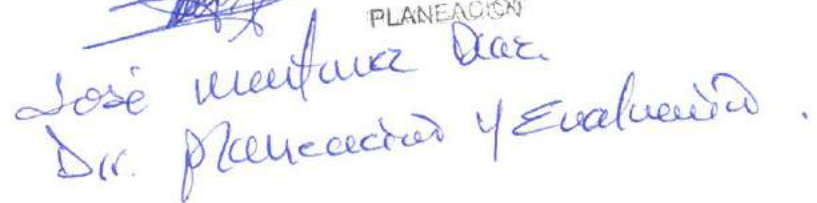 PLANEACIÓN
José Martínez Díaz.
Dir. Planeación y Evaluación.